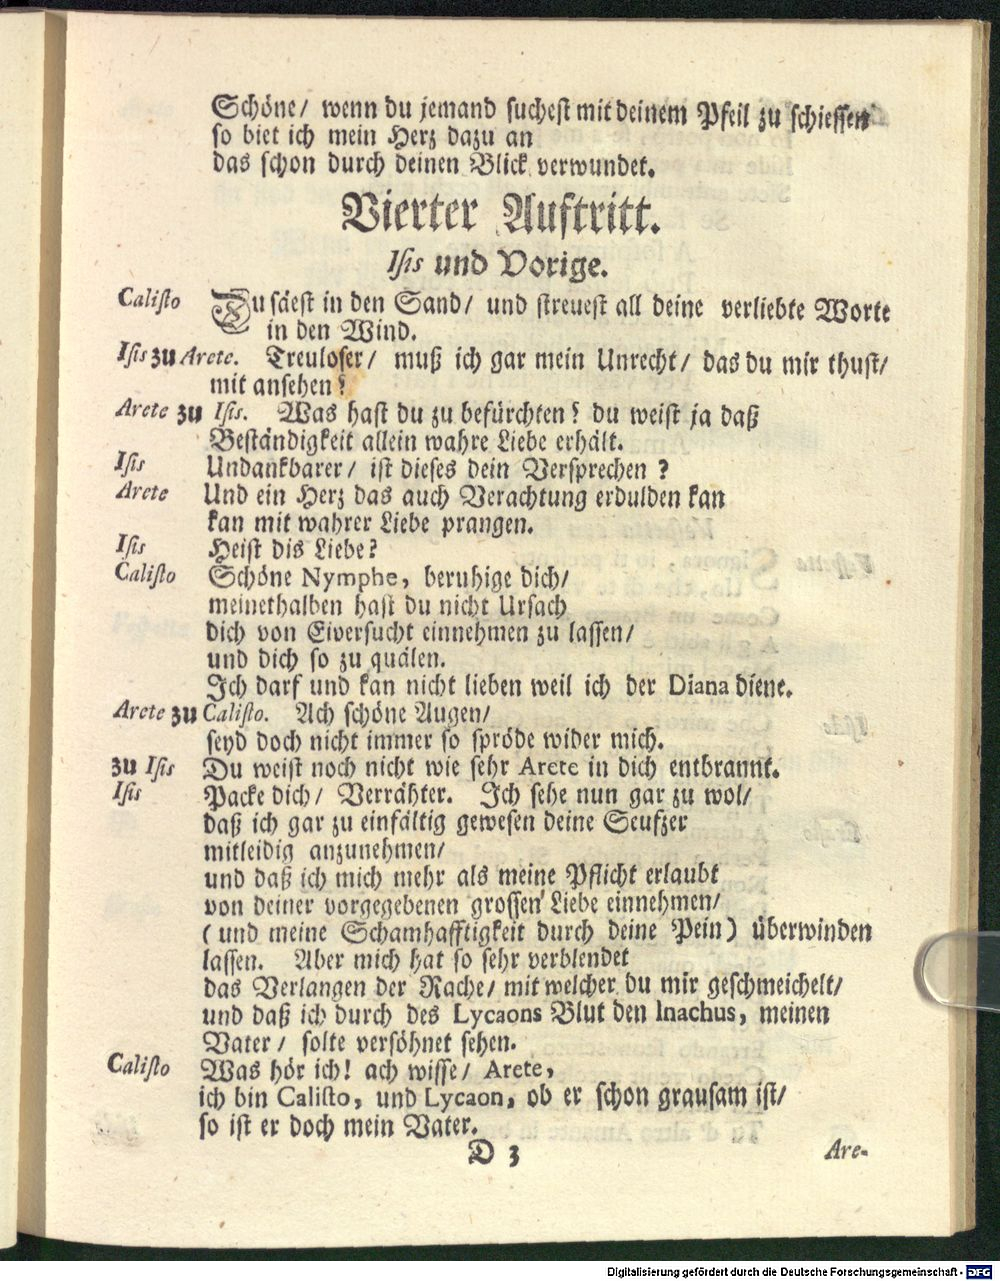 Schöne/ wenn du jemand suchest mit deinem Pfeil zu schiessen
so biet ich mein Herz dazu an
das schon durch deinen Blick verwundet.
Vierter Auftritt.
Isis und Vorige.
Calisto Du säest in den Sand/ und streuest all deine verliebte Worte
in den Wind.
Isis zu Arete. Treuloser/ muß ich gar mein Unrecht/ das du mir thust/
mit ansehen?
Arete zu Isis. Was hast du zu befürchten? du weist ja daß
Beständigkeit allein wahre Liebe erhält.
Isis Undankbarer/ ist dieses dein Versprechen ?
Arete Und ein Herz das auch Verachtung erdulden kan
kan mit wahrer Liebe prangen.
Isis Heist dis Liebe?
Calisto Schöne Nymphe, beruhige dich/
meinethalben hast du nicht Ursach
dich von Eiversucht einnehmen zu lassen/
und dich so zu quälen.
Ich darf und kan nicht lieben weil ich der Diana diene.
Arete zu Calisto. Ach schöne Augen/
seyd doch nicht immer so spröde wider mich.
zu Isis Du weist noch nicht wie sehr Arete in dich entbrannt.
Isis Packe dich/ Verrähter. Ich sehe nun gar zu wol/
daß ich gar zu einfältig gewesen deine Seufzer
mitleidig anzunehmen/
und daß ich mich mehr als meine Pflicht erlaubt
von deiner vorgegebenen grossen Liebe einnehmen/
(und meine Schamhafftigkeit durch deine Pein) überwinden
lassen. Aber mich hat so sehr verblendet
das Verlangen der Rache/ mit welcher du mir geschmeichelt/
und daß ich durch des Lycaons Blut den Inachus, meinen
Vater/ solte versöhnet sehen.
Calisto Was hör ich! ach wisse/ Arete,
ich bin Calisto, und Lycaon, ob er schon grausam ist/
so ist er doch mein Vater.
D 3 Are-
Digitalisierung gefördert durch die Deutsche Forschungsgemeinschaft - DFG